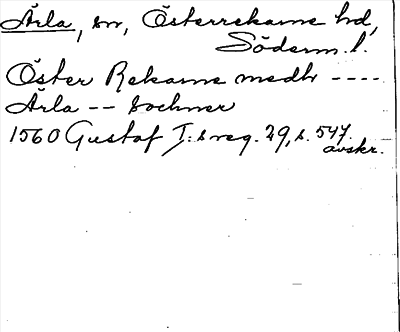 Ärla, sn, Österrekarne hd,
Söderm. l.
Öster Rekarne medh ----
Ärla -- sochner
1560 Gustaf I:s reg. 29, s. 547.
avskr.